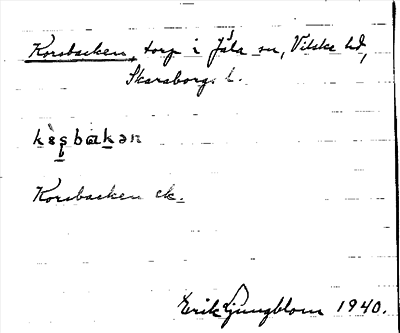 Korsbacken, torp i Jäla sn, Vilske hd,
Skaraborgs l.
Korsbacken ek.
Erik Ljungblom 1940.